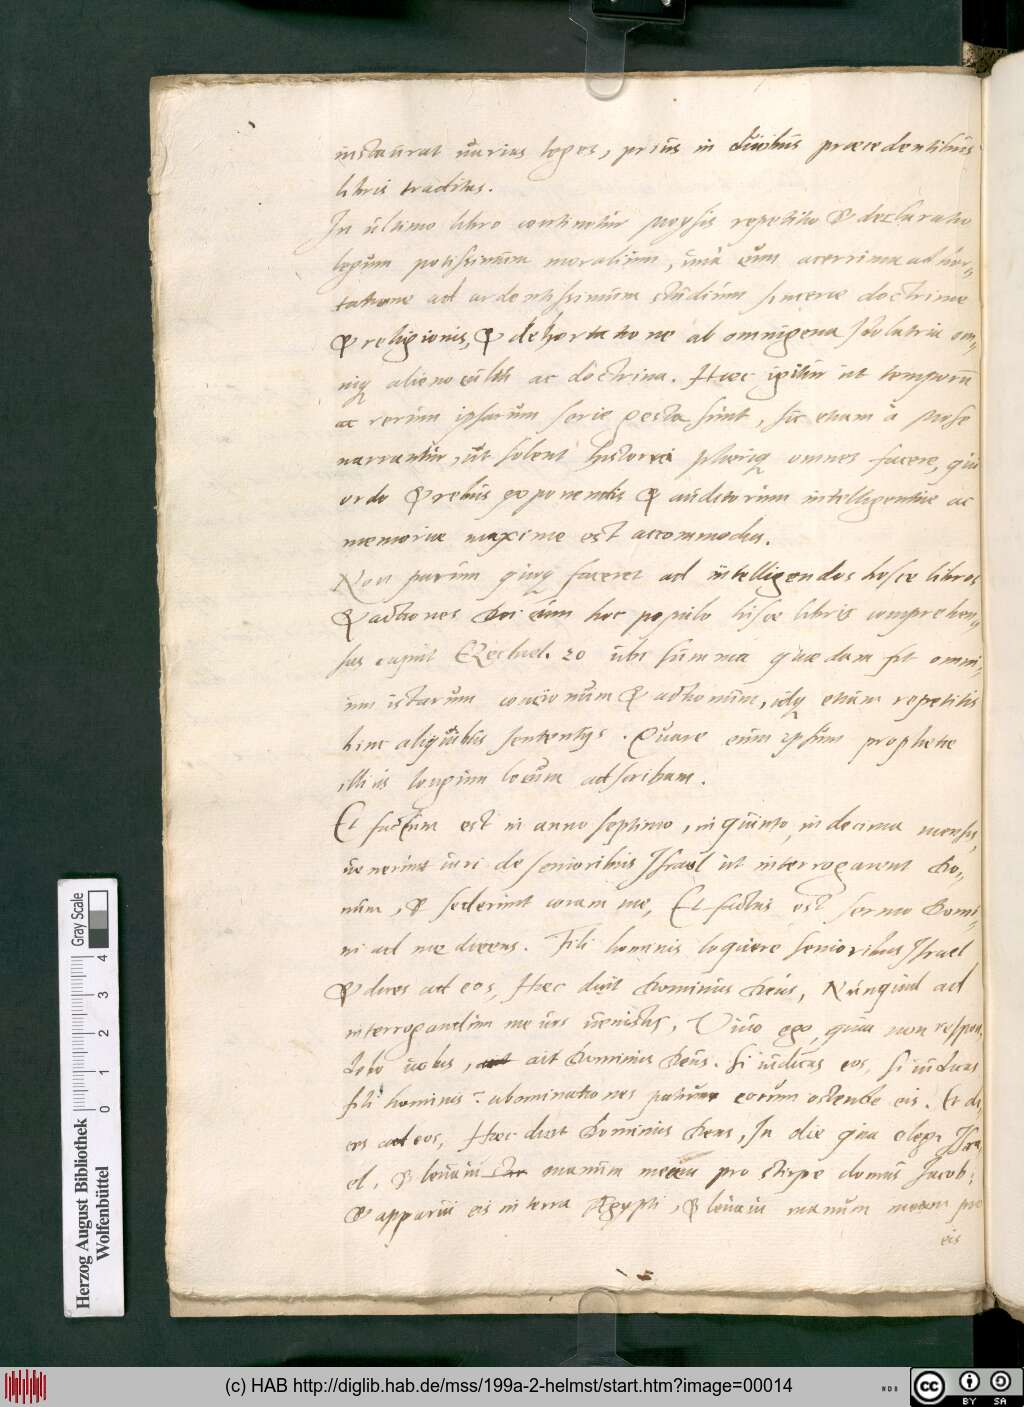 instaurat varias leges, prius in duibus praecedentibus
libris traditas.
In ultimo libro continetur Moysis repetitio & declaratio
legum potissimum moralium, una cum acerrima adhor=
tatione ad ardentissimum studium sincerae doctrinae
& religionis, & dehortatione ab omnigena Idolatria om=
niq alieno cultu ac doctrina. Haec igitur ut temporū
ac rerum ipsarum serie gesta sunt, sic etiam a Mose
narrantur, ut solent historici pleriq omnes facere, qui
ordo & rebus exponendis & auditorum intelligentiae ac
memoriae maxime est accommodus.
Non parum quoq faceret ad intelligendos hosce libros
& actiones Dei cum hoc populo hisce libris comprehen=
sas caput Ezechiel. 20 ubi summa quaedam fit omni=
um istarum concionum & actionum, idq etiam repetitis
hinc aliquibus sententijs. Quare cum ipsum prophetae
illius longum locum adscribam.
Et factum est in anno septimo, in quinto, in decima mensis,
venerunt viri de senioribus Israel ut interrogarent Do=
num, & sederunt coram me, Et factus est sermo Domi=
ni ad me dicens. Fili hominis loquere senioribus Israel
& dices ad eos, Haec dicit Dominus Deus, Nunquid ad
interrogandum me vos venistis, Vivo ego, quia non respon=
debo vobis, ait Dominus Deus. Si iudicas eos, si iudicas
fili hominis: abominationes patrum eorum ostende eis. Et di=
ces ad eos, Haec dicit Dominus Deus, In die qua elegi Isra=
el, & levavi manum meam pro stirpe domus Jacob:
& apparui eis in terra Aegypti, & levavi manum meam pro
eis
Herzog August Bibliothek
Wolfenbüttel
Gray Scale
0 1 2 3 4
(c) HAB http://diglib.hab.de/mss/199a-2-helmst/start.htm?image=00014
WDB
cc BY SA